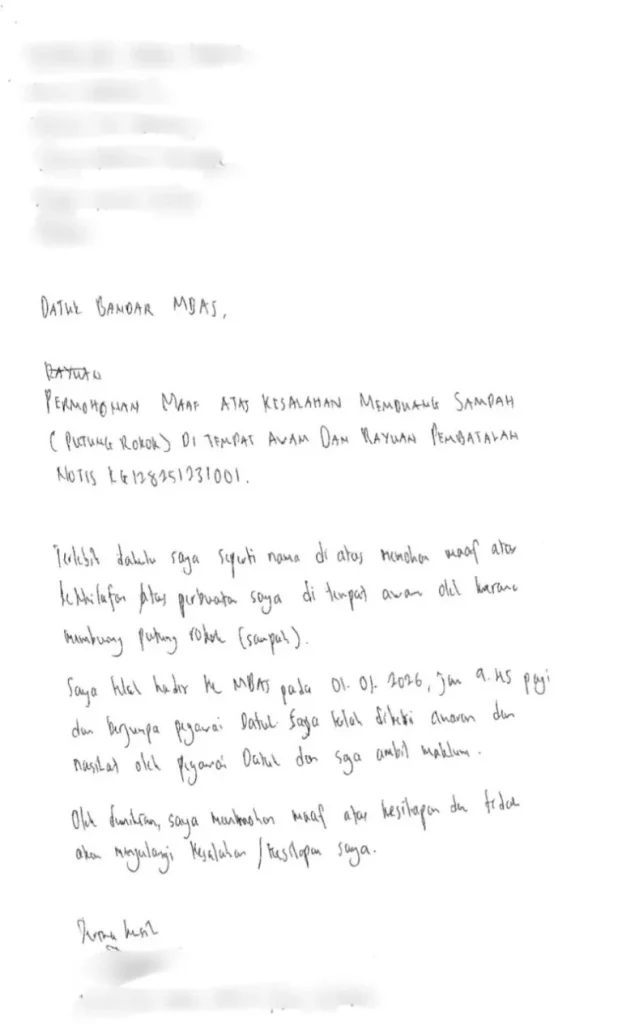 DATUK BANDAR MBAS,
RAYUAN
PERMOHONAN MAAF ATAS KESALAHAN MEMBUANG SAMPAH
(PUTUNG ROKOK) DI TEMPAT AWAM DAN RAYUAN PEMBATALAN
NOTIS KG128251231001.
Terlebih dahulu saya seperti nama di atas memohon maaf atas
kekhilafan atas perbuatan saya di tempat awam oleh kerana
membuang putung rokok (sampah).
Saya telah hadir ke MBAS pada 01.01.2026, jam 9.45 pagi
dan berjumpa pegawai Datuk. Saya telah diberi amaran dan
nasihat oleh pegawai Datuk dan saya ambil maklum.
Oleh demikian, saya memohon maaf atas kesilapan dan tidak
akan mengulangi kesalahan/kesilapan saya.
Terima kasih